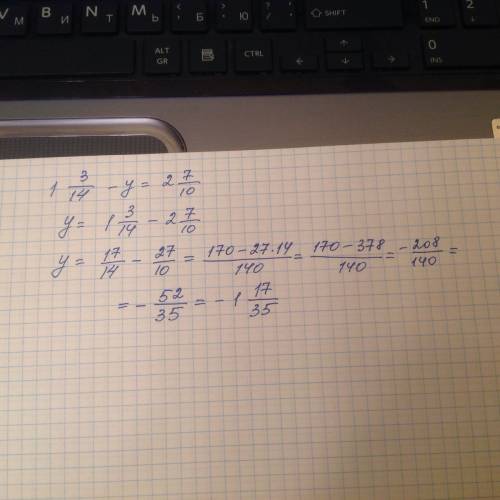 V м В и N т М ь < , Б > . ю ? / SHIFT 1 END 2 ↓
ALT GR CTRL ← ↑ ↓ → 0 INS
1 3/14 - y = 2 7/10
y = 1 3/14 - 2 7/10
y = 17/14 - 27/10 = 170-27·14/140 = 170-378/140 = -208/140 =
= - 52/35 = - 1 17/35